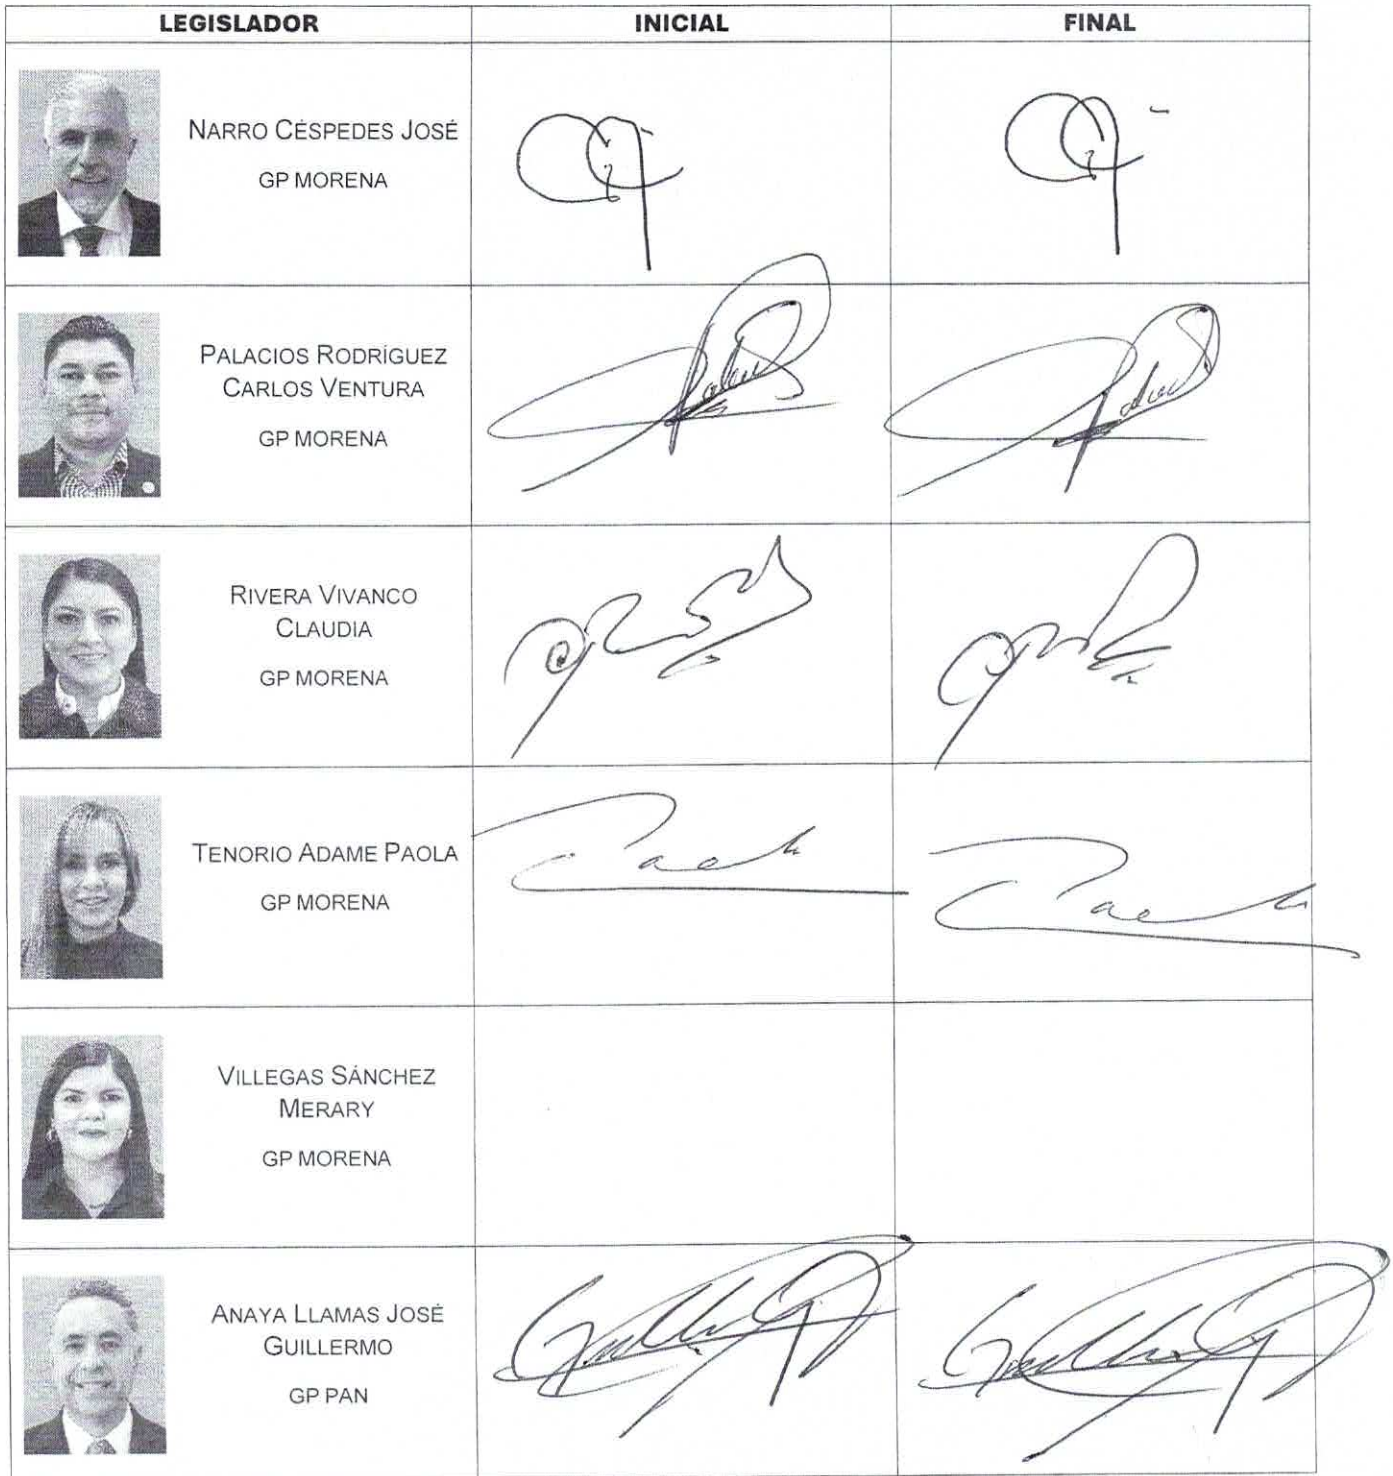 LEGISLADOR INICIAL FINAL
NARRO CÉSPEDES JOSÉ
GP MORENA
PALACIOS RODRÍGUEZ
CARLOS VENTURA
GP MORENA
RIVERA VIVANCO
CLAUDIA
GP MORENA
TENORIO ADAME PAOLA
GP MORENA
VILLEGAS SÁNCHEZ
MERARY
GP MORENA
ANAYA LLAMAS JOSÉ
GUILLERMO
GP PAN